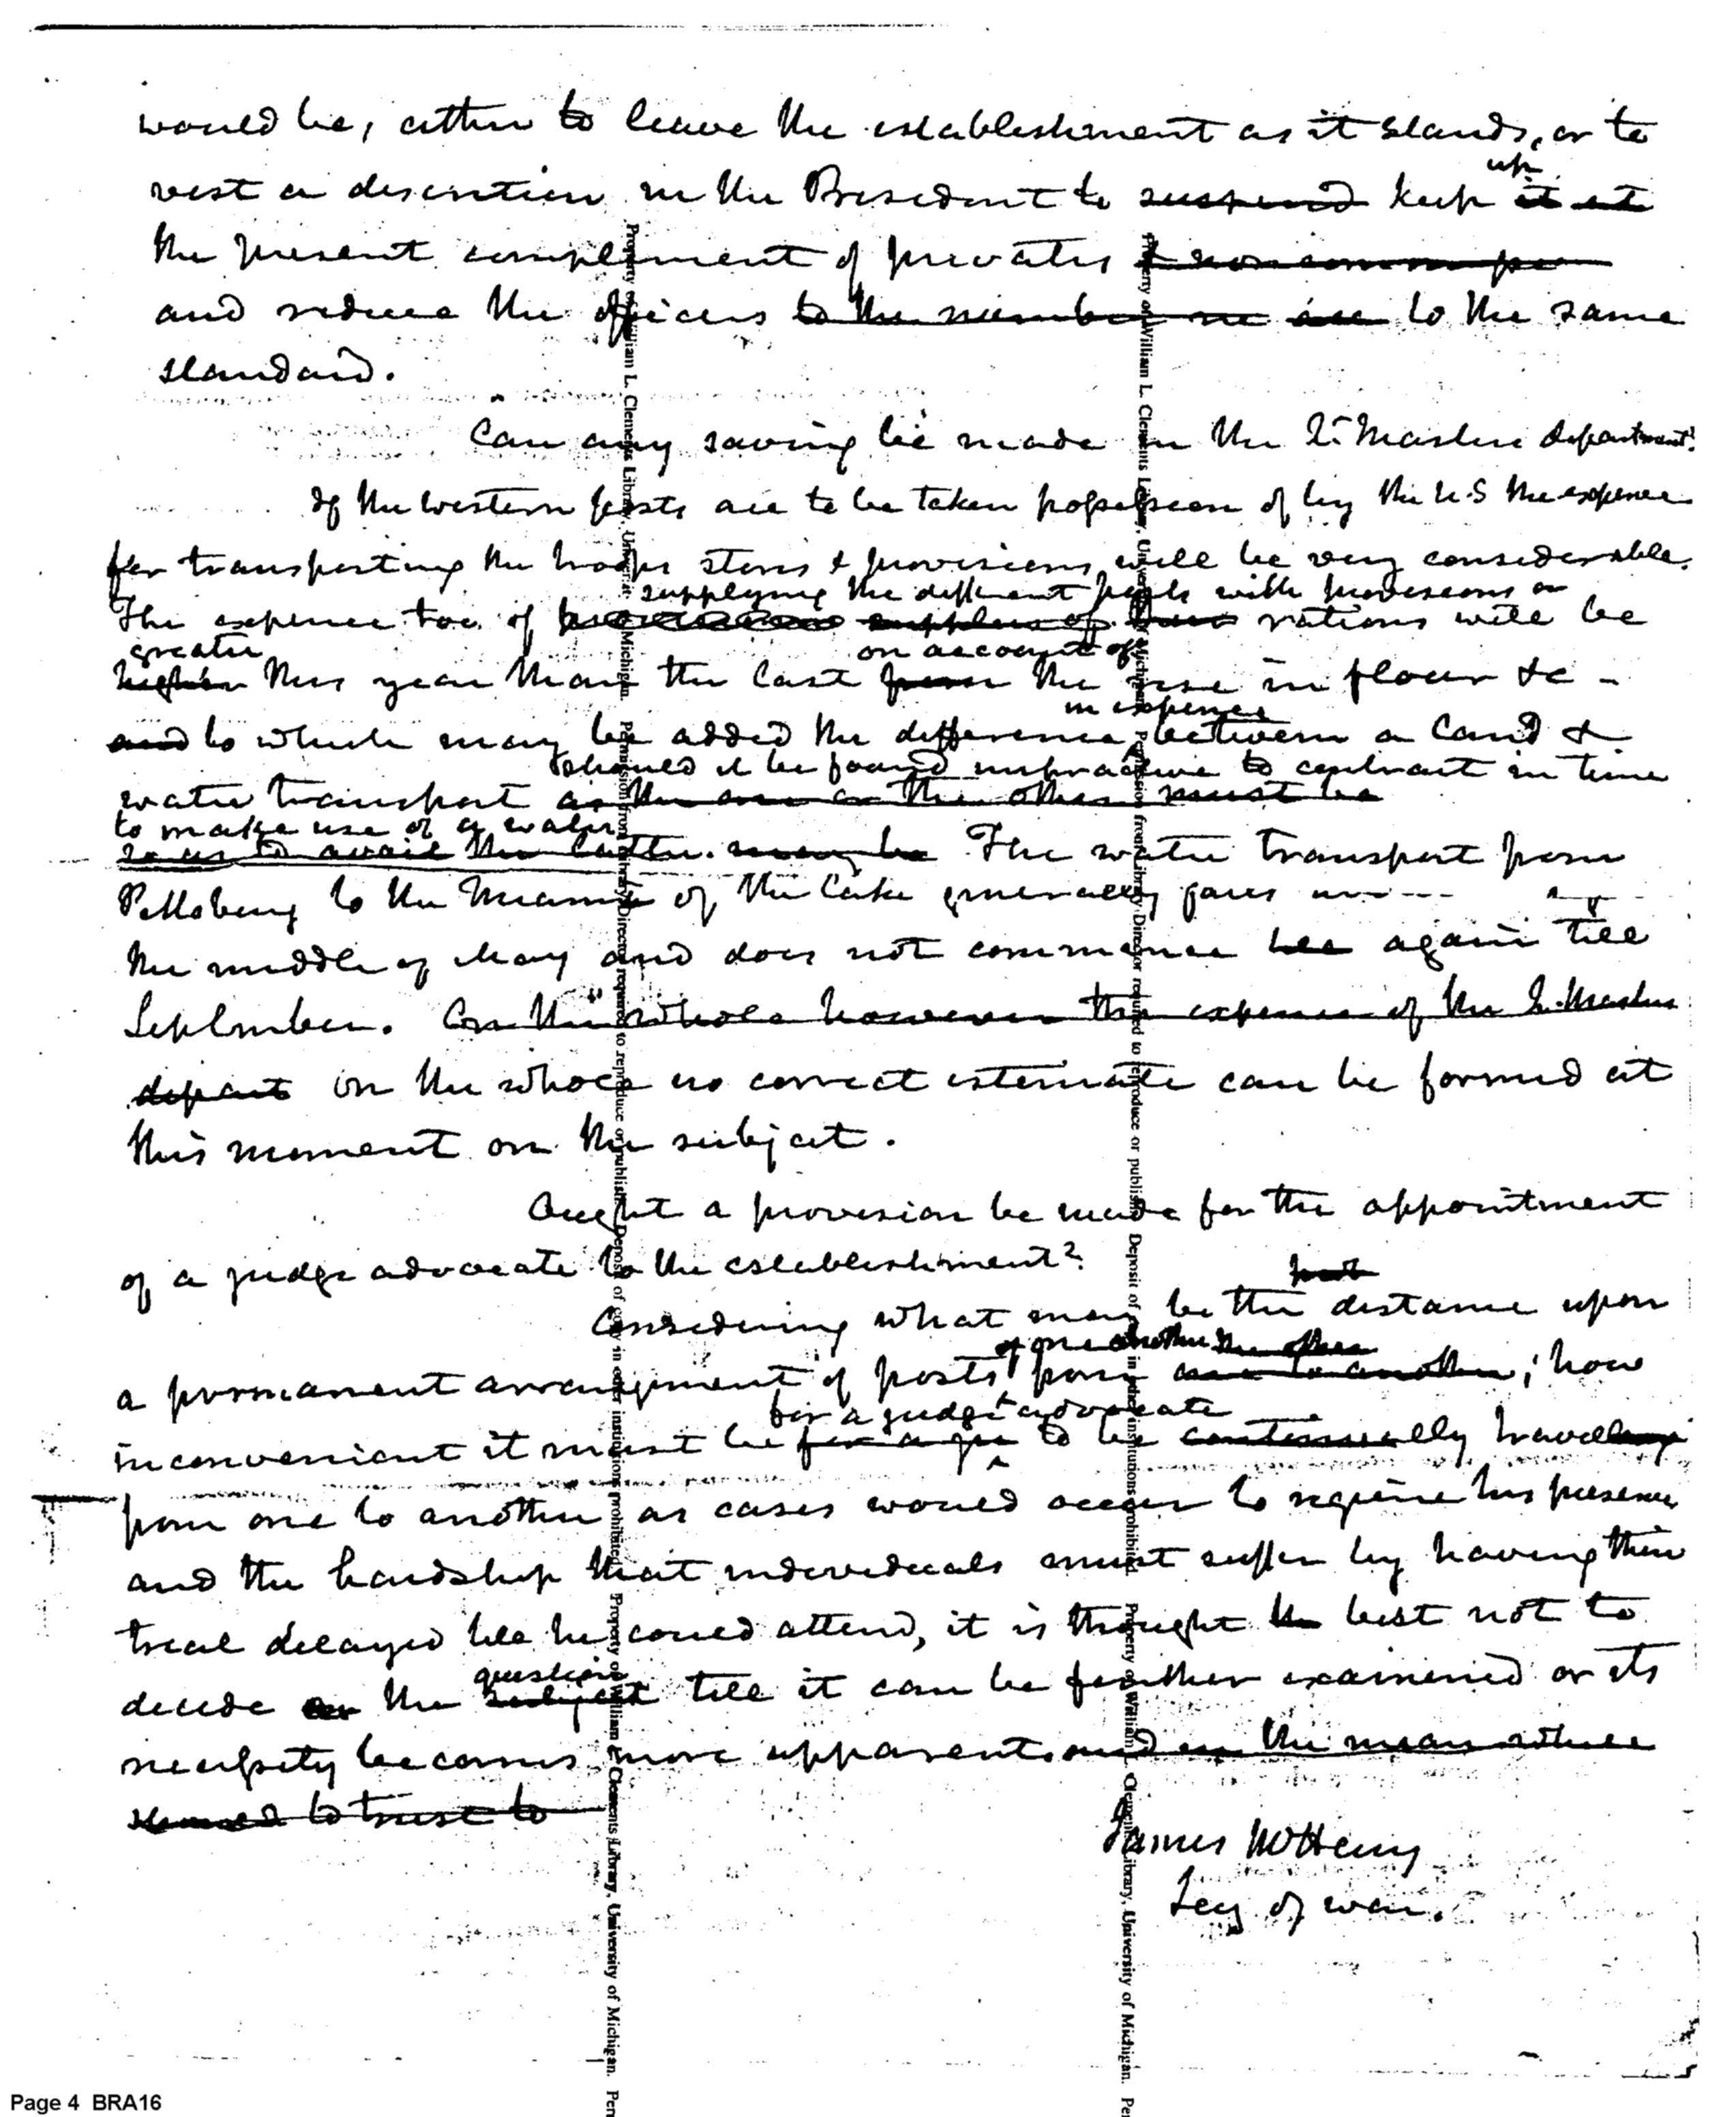 would be, either to leave the establishment as it stands, or to
vest a discretion in the President to suspend keep up it at
the present complement of privates & non comm
and reduce the officers to the number to the same
standard.
Can any saving be made in the Qr Master department?
If the western posts are to be taken possession of by the U.S the expence
for transporting the troops stores & provisions will be very considerable.
supplying the different posts with provisions or
The expence too of supplies of rations will be
greater on account of
higher this year than the last from the rise in flour &c -
in expence
and to which may be added the difference, between a land &
should it be found to contract in time
water transport as the one or the other must be
to make use of a water
so as to avail the latter. may be The water transport from
Pittsburg to the Miami of the Lake generally
the middle of May and does not commence again till
September. On the whole however the expence of the Q. Master
depart on the whole no correct estimate can be formed at
this moment on the subject.
Ought a provision be made for the appointment
of a judge advocate to the establishment?
Considering what may be the distance upon
of one another the other
a permanent arrangement of posts from one to another; how
for a judge advocate
inconvenient it must be for a to be continually travelling
from one to another as cases would occur to require his presence
and the hardship that individuals must suffer by having their
trial delayed till he could attend, it is thought best not to
question
decide on the subject till it can be further examined or its
necessity becomes more apparent. and in the mean while
to trust to
James McHenry
Secy of war.
Property of William L. Clements Library, University of Michigan. Permission from Library Director required to reproduce or publish. Deposit of copy in other institutions prohibited.
Property of William L. Clements Library, University of Michigan. Per
Property of William L. Clements Library, University of Michigan. Permission from Library Director required to reproduce or publish. Deposit of copy in other institutions prohibited.
Property of William L. Clements Library, University of Michigan. Per
Page 4 BRA16